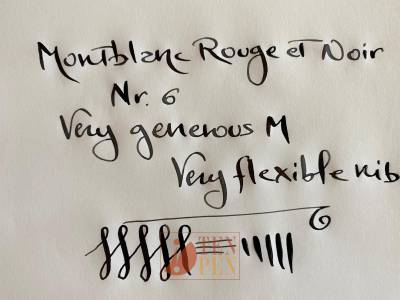 Montblanc Rouge et Noir
Nr. 6
Very generous M
Very flexible nib
6
TEN
PEN